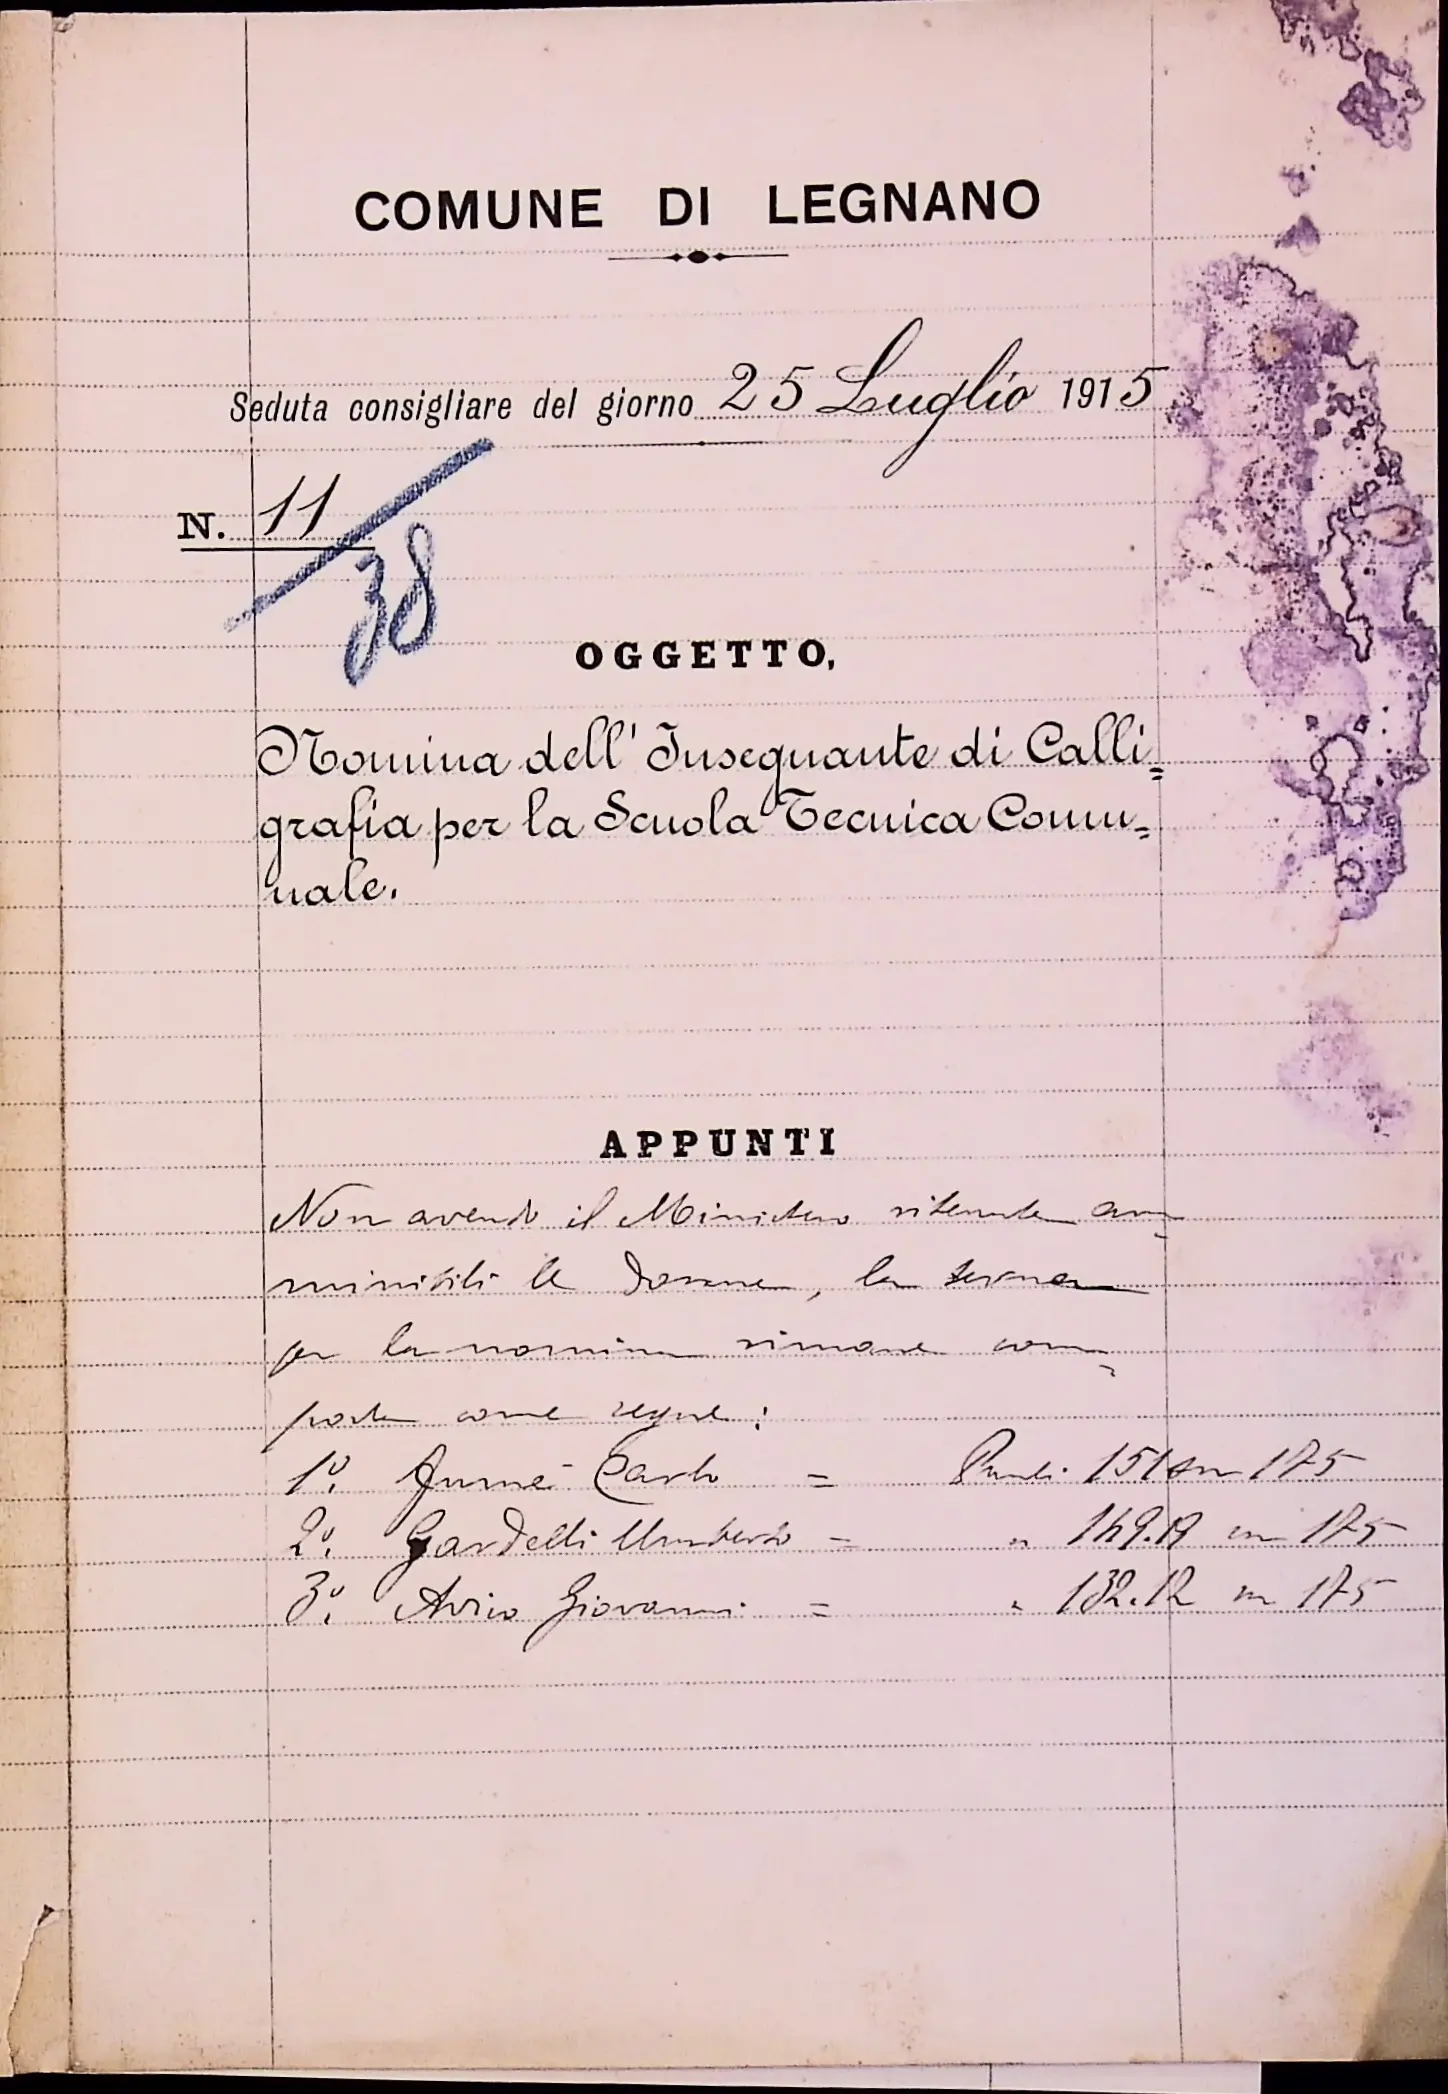 COMUNE DI LEGNANO
Seduta consigliare del giorno 25 Luglio 1915
N. 11
38
OGGETTO,
Nomina dell' Insegnante di Calli=
grafia per la Scuola Tecnica Comu=
nale.
APPUNTI
Non avendo il Ministero ritenute am-
minisibili le donne, la terna
per la nomina rimane com-
posta come segue:
1º. Carlo = Punti 151 su 175
2º. Gardelli Umberto = " 149.19 su 175
3º. Avico Giovanni = " 132.12 su 175